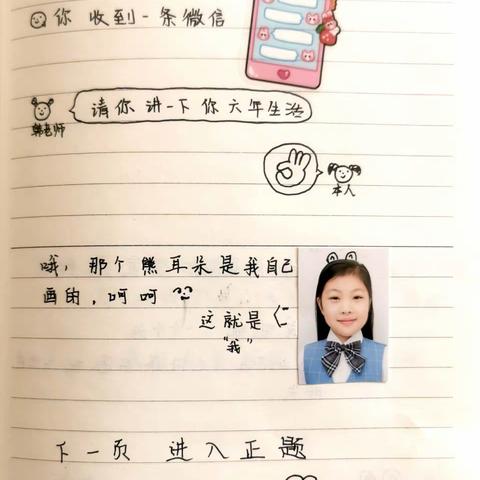 你 收到一条微信
请你讲一下你六年生活
韩老师
本人
哦，那个熊耳朵是我自己
画的，呵呵
这就是
"我"
下一页 进入正题